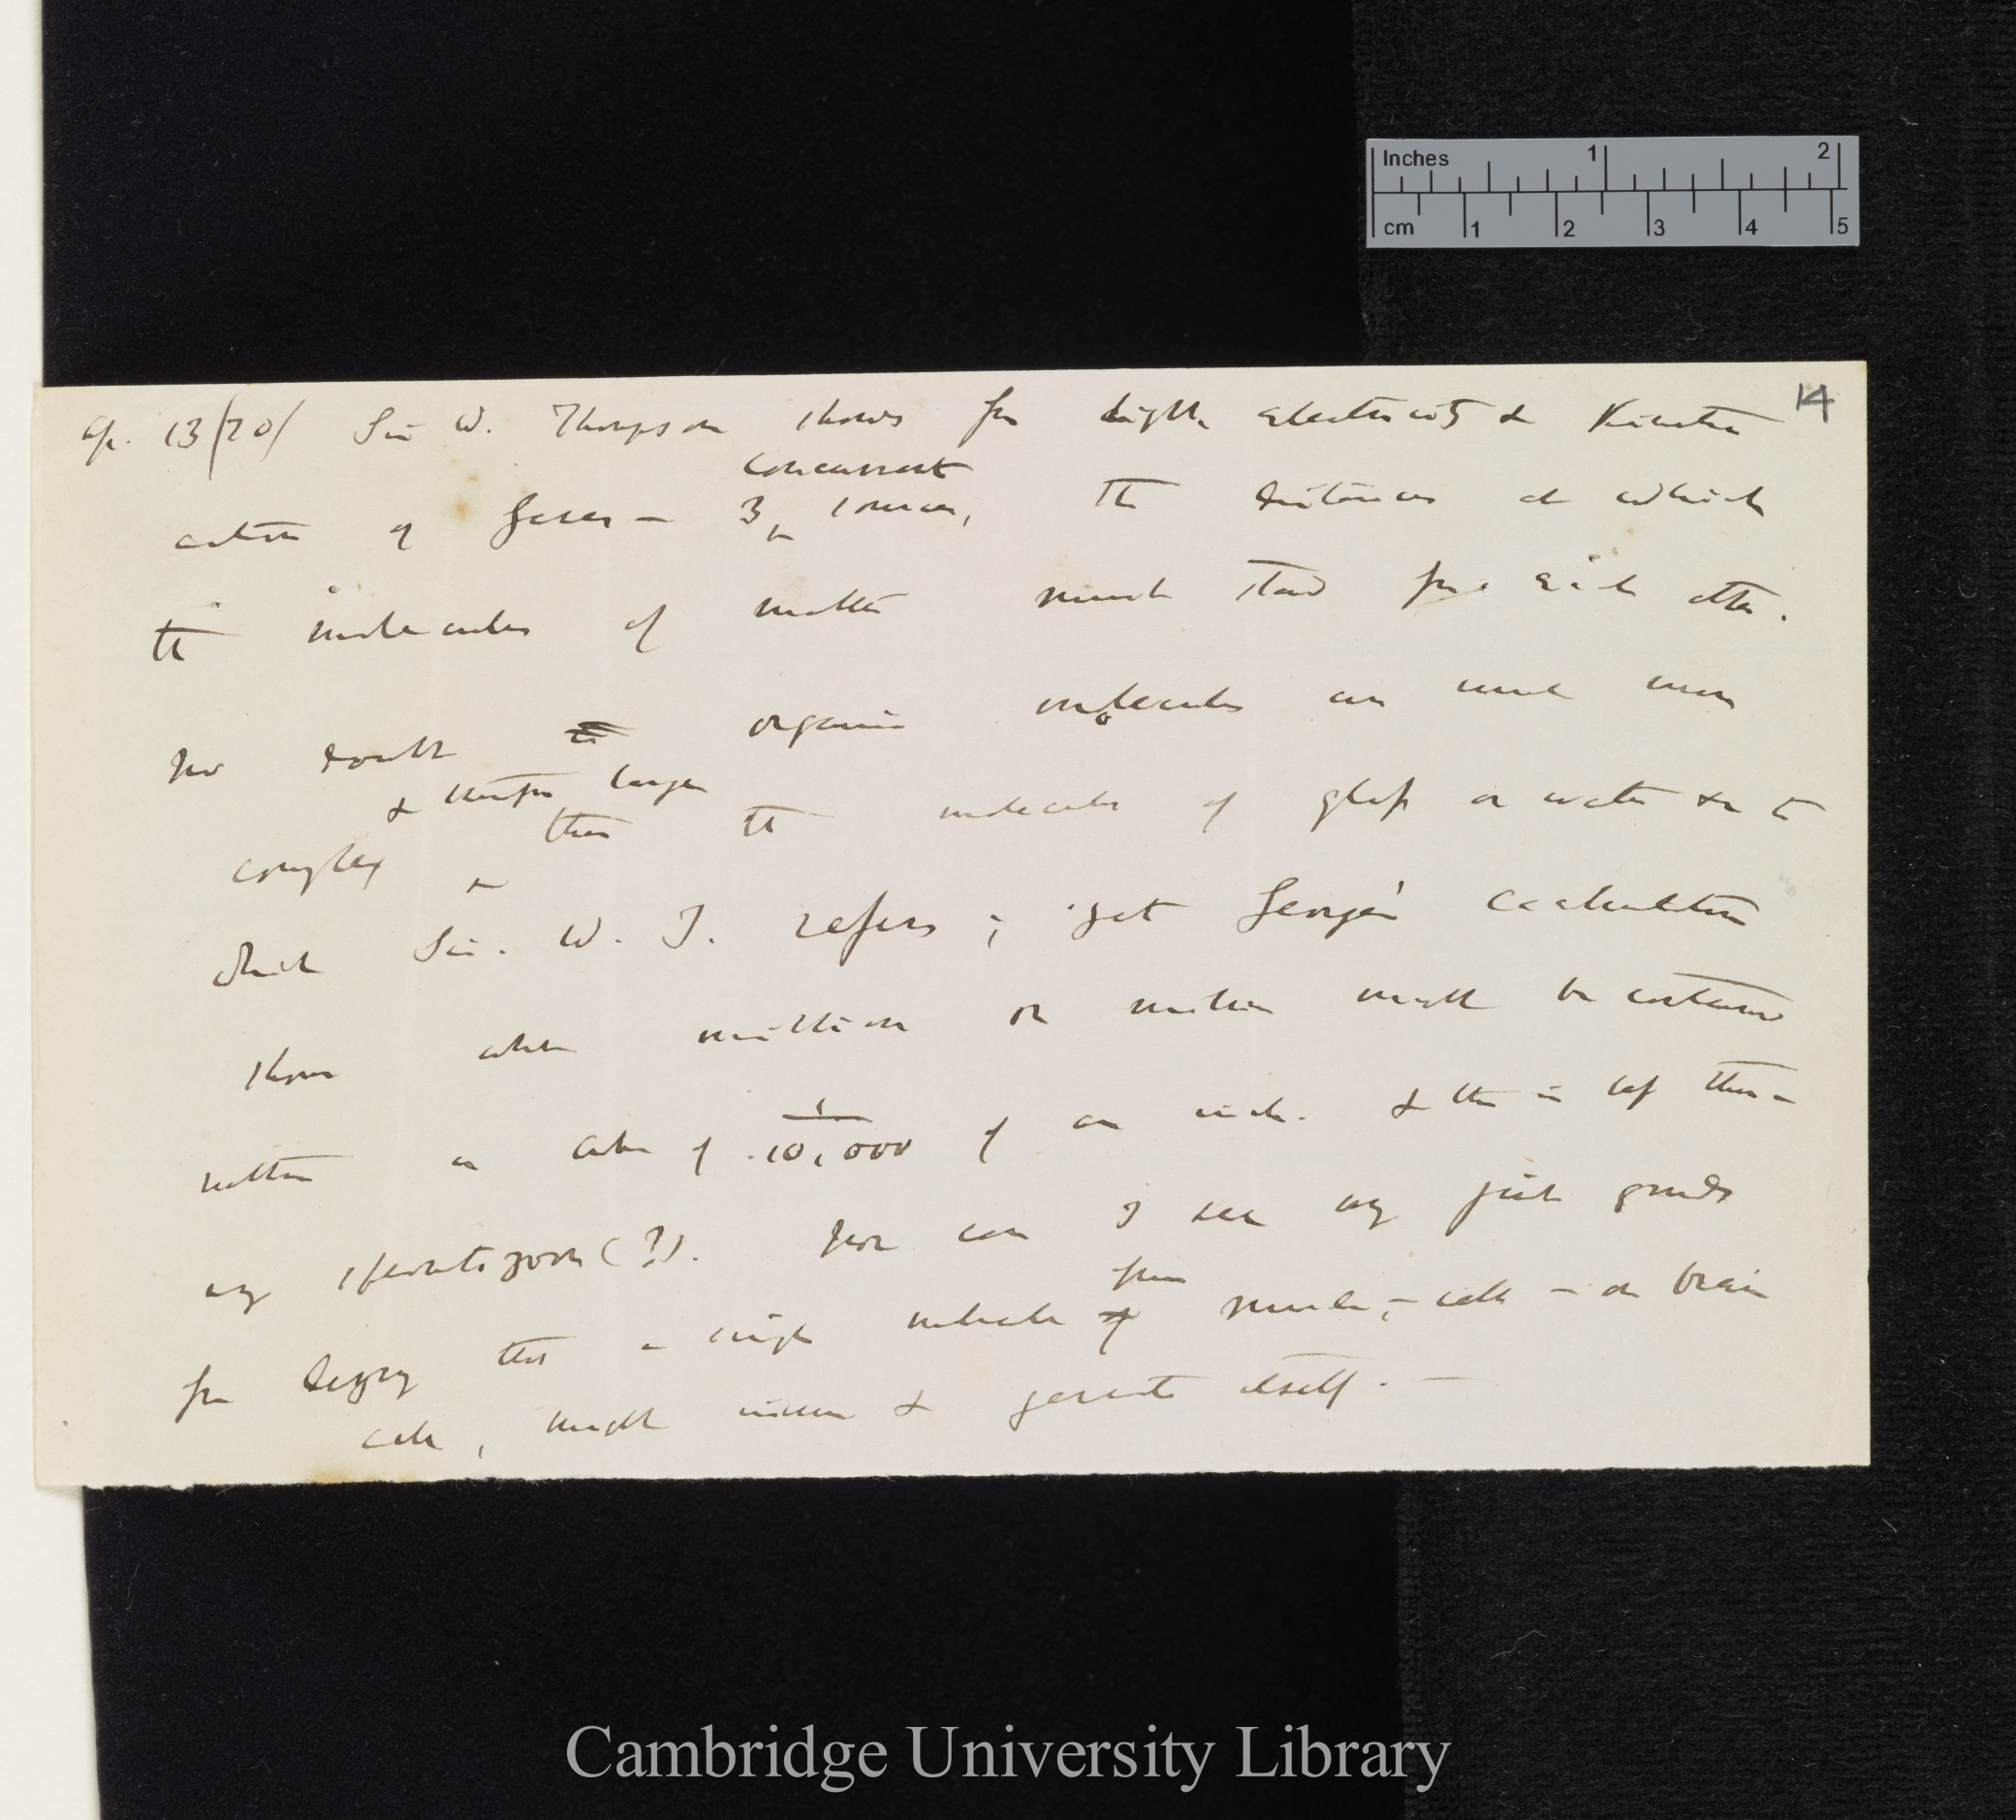 Inches 1 2
cm 1 2 3 4 5
14
Ap. 13/70/ Sir W. Thompson shows from Light, electricity & Kinetic
concurrent
action of gases — 3 sources, the distances at which
the molecules of matter must stand from each other.
No doubt the organic molecules are much more
& therefore larger
complex than the molecules of glass or water &c to
which Sir. W. T. refers; yet George's calculation
shows what million on million might be contained
within a cube of 1/10,000 of an inch. & this is less than a
any spermatozoon (?). Nor can I see any just grounds
from
for denying that a single molecule of muscle, — cell — or brain
cell, might & generate itself. —
Cambridge University Library